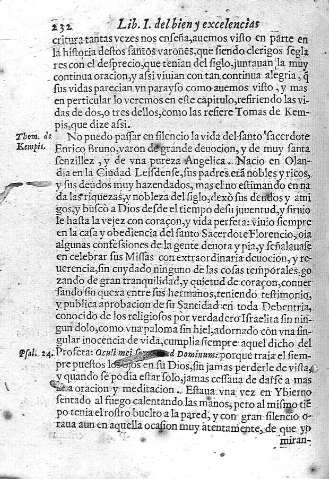 232 Lib. I. del bien y excelencias
critura tantas vezes nos enseña, auemos visto en parte en
la historia destos santos varones, que siendo clerigos segla
res con el desprecio, que tenian del siglo, juntauan la muy
continua oracion, y assi viuian con tan continua alegria, q̃
sus vidas parecian vn parayso como auemos visto, y mas
en perticular lo veremos en este capitulo, refiriendo las vi-
das de dos, o tres dellos, como las refiere Tomas de Kem-
pis, que dize assi.
Thom. de
Kempis.
No puedo passar en silencio la vida del santo sacerdote
Enrico Bruno, varon de grande deuocion, y de muy santa
senzillez, y de vna pureza Angelica. Nacio en Olan-
dia en la Ciudad Leisdense, sus padres erã nobles y ricos,
y sus deudos muy hazendados, mas el no estimando en na
da las riquezas, y nobleza del siglo, dexò sus deudos y ami
gos, y buscò a Dios desde el tiempo de su juventud, y siruio
le hasta la vejez con coraçon, y vida perfeta: vinio siempre
en la casa y obediencia del santo Sacerdote Florencio, oia
algunas confessiones de la gente deuota y pia, y señalauase
en celebrar sus Missas con extraordinaria deuocion, y re-
uerencia, sin cuydado ninguno de las cosas temporales, go
zando de gran tranquilidad, y quietud de coraçon, conuer
sando sin quexa entre sus hermanos, teniendo testimonio,
y publica aprobacion de su Santidad en toda Debentria,
conocido de los religiosos por verdadero Israelita sin nin-
gun dolo, como vna paloma sin hiel, adornado con vna sin-
gular inocencia de vida, cumplia siempre aquel dicho del
Psal. 24.
Profeta: Oculi mei ad Dominum: porque traia el siem-
pre puestos los ojos en su Dios, sin jamas perderle de vista,
y quando se podia estar solo, jamas cessaua de darse a mas
oracion y meditacion. Estaua vna vez en Ybierno
sentado al fuego calentando las manos, pero al mismo tiẽ
po tenia el rostro buelto a la pared, y con gran silencio o-
raua aun en aquella ocasion muy atentamente, de que yo
miran-